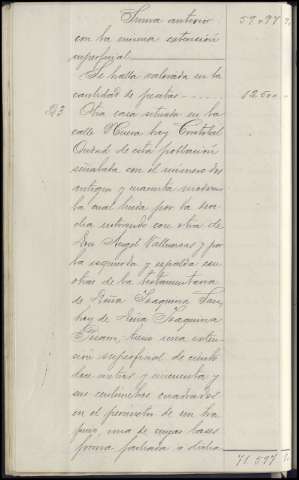 Suma anterior 59.097
con la misma estención
superficial
Se halla valorada en la
cantidad de pesetas 12.500
23 Otra casa situada en la
calle Nueva hoy Cristobal
de esta población
señalada con el numero dos
antiguo y cuarenta moderno
la cual linda por la dere-
cha entrando con otra de
Don Angel y por
la izquierda y espalda con
otras de la testamentaria
de Doña Joaquina
hoy de Doña Joaquina
tiene una esten-
sión superficial de ciento
dos metros y cincuenta y
seis centimetros cuadrados
en el perimetro de un tra-
pecio, una de cuyas bases
forma fachada a dicha
71.597